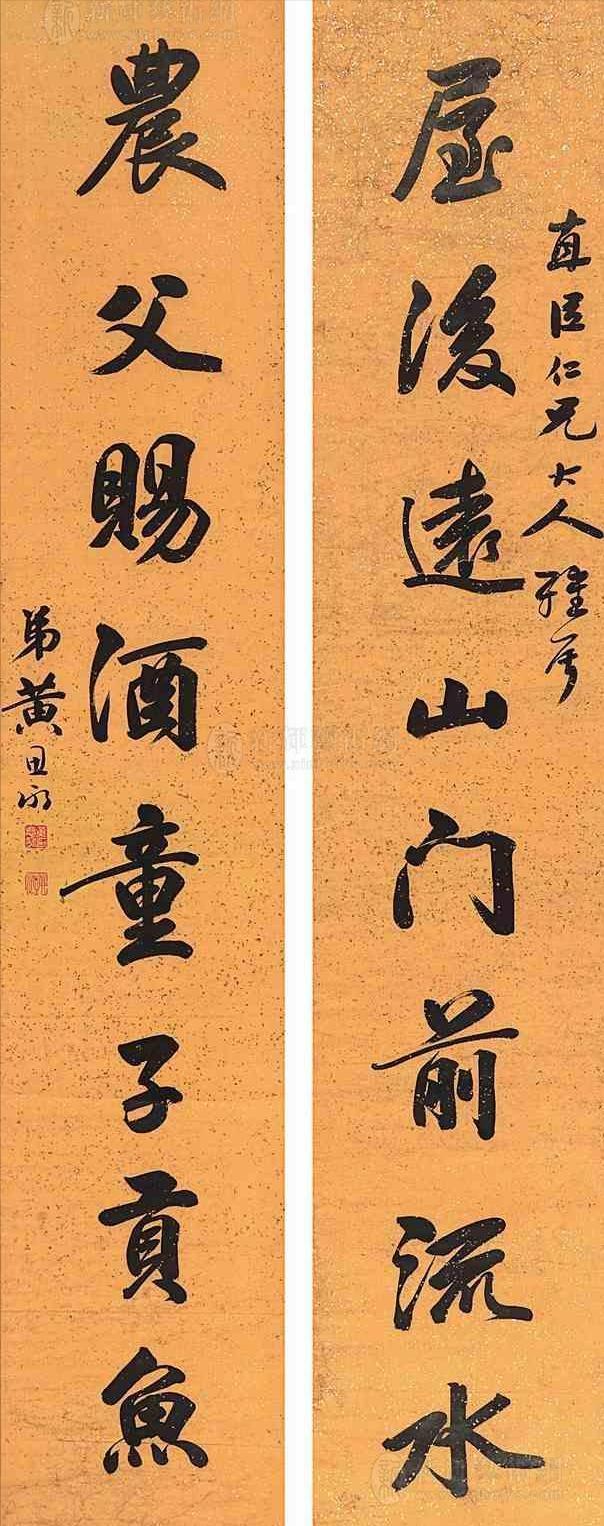 直臣仁兄大人雅屬
屋後遠山门前流水
農父賜酒童子貢魚
弟黃思永